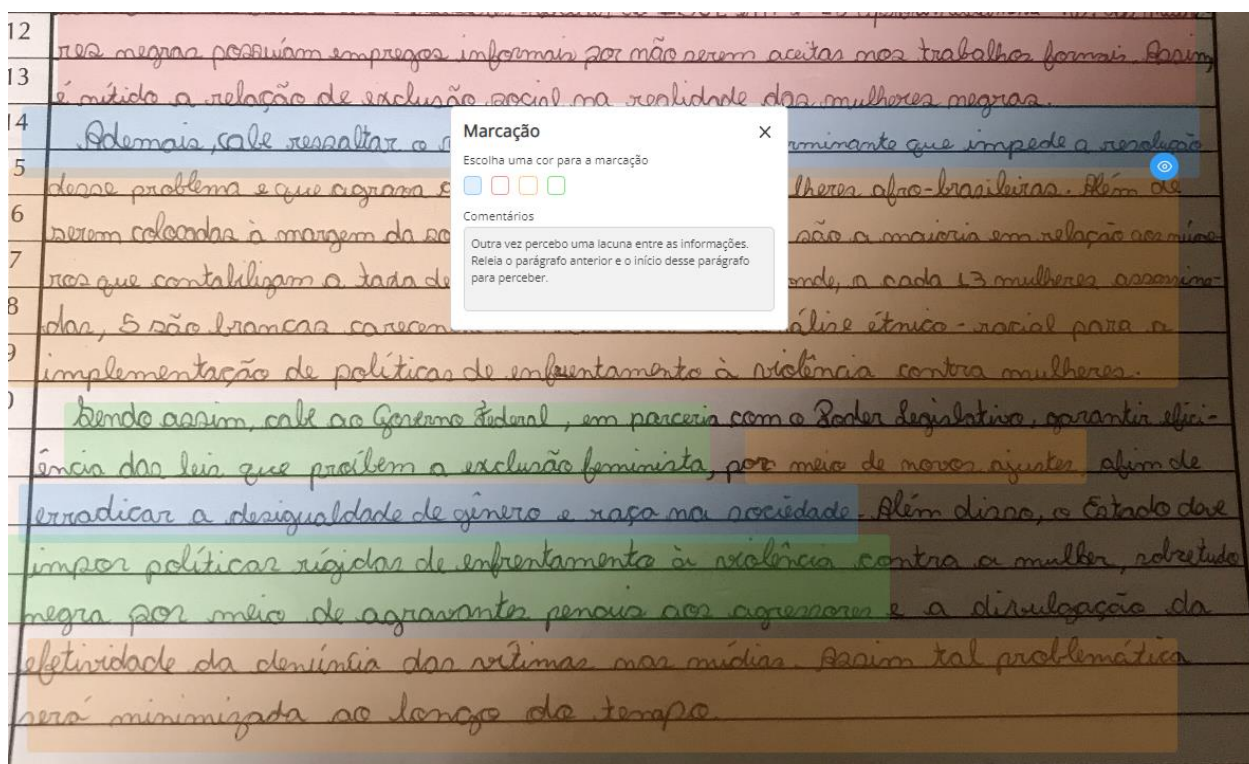 12
res negras possuíam empregos informais por não serem aceitas nos trabalhos formais. Assim,
13
é nítido a relação de exclusão social na realidade das mulheres negras.
14
Ademais, cabe ressaltar o
minante que impede a resolução
5
desse problema e que agrava
lheres afro-brasileiras. Além de
6
serem colocadas à margem da so
são a maioria em relação aos núme-
7
ros que contabilizam a taxa de
onde, a cada 13 mulheres assassina-
8
das, 5 são brancas
álise étnico-racial para a
9
implementação de políticas de enfrentamento à violência contra mulheres.
Sendo assim, cabe ao Governo Federal, em parceria com o Poder Legislativo, garantir efici-
ência das leis que proíbem a exclusão feminista, por meio de novos ajustes afim de
erradicar a desigualdade de gênero e raça na sociedade. Além disso, o Estado deve
impor políticas rígidas de enfrentamento à violência contra a mulher, sobretudo
negra por meio de agravantes penais aos agressores e a divulgação da
efetividade da denúncia das vítimas nas mídias. Assim tal problemática
será minimizada ao longo do tempo.
Marcação
Escolha uma cor para a marcação
Comentários
Outra vez percebo uma lacuna entre as informações.
Releia o parágrafo anterior e o início desse parágrafo
para perceber.